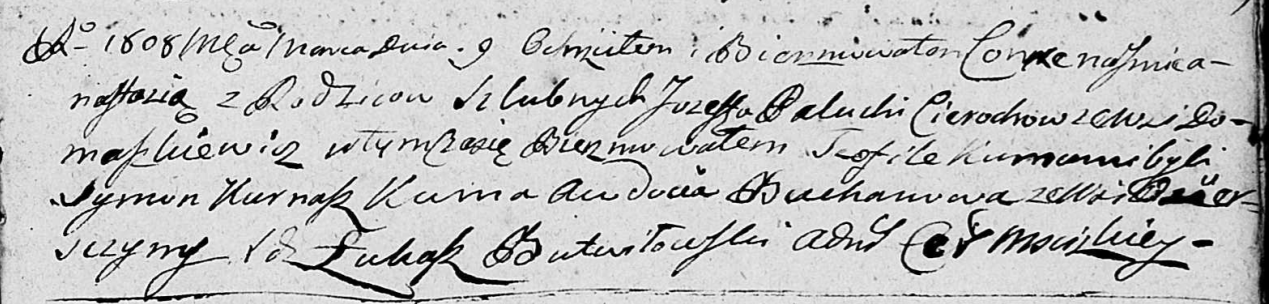 Ro 1808 Mca Marca dnia 9 Ochrziłem i Bierzmowałem Corke na Jmie a-
nastazią z Rodzicow szlubnych Jozefa Paluchi Cierochow ze wsi Do-
maszkiewicz w tym czasie Bierzmowałem Teofile Kumami byli
Symon Kurnasz Kuma Audocia Buchanowa ze wsi
szczyny X dz Łukasz Butwiłowski ad